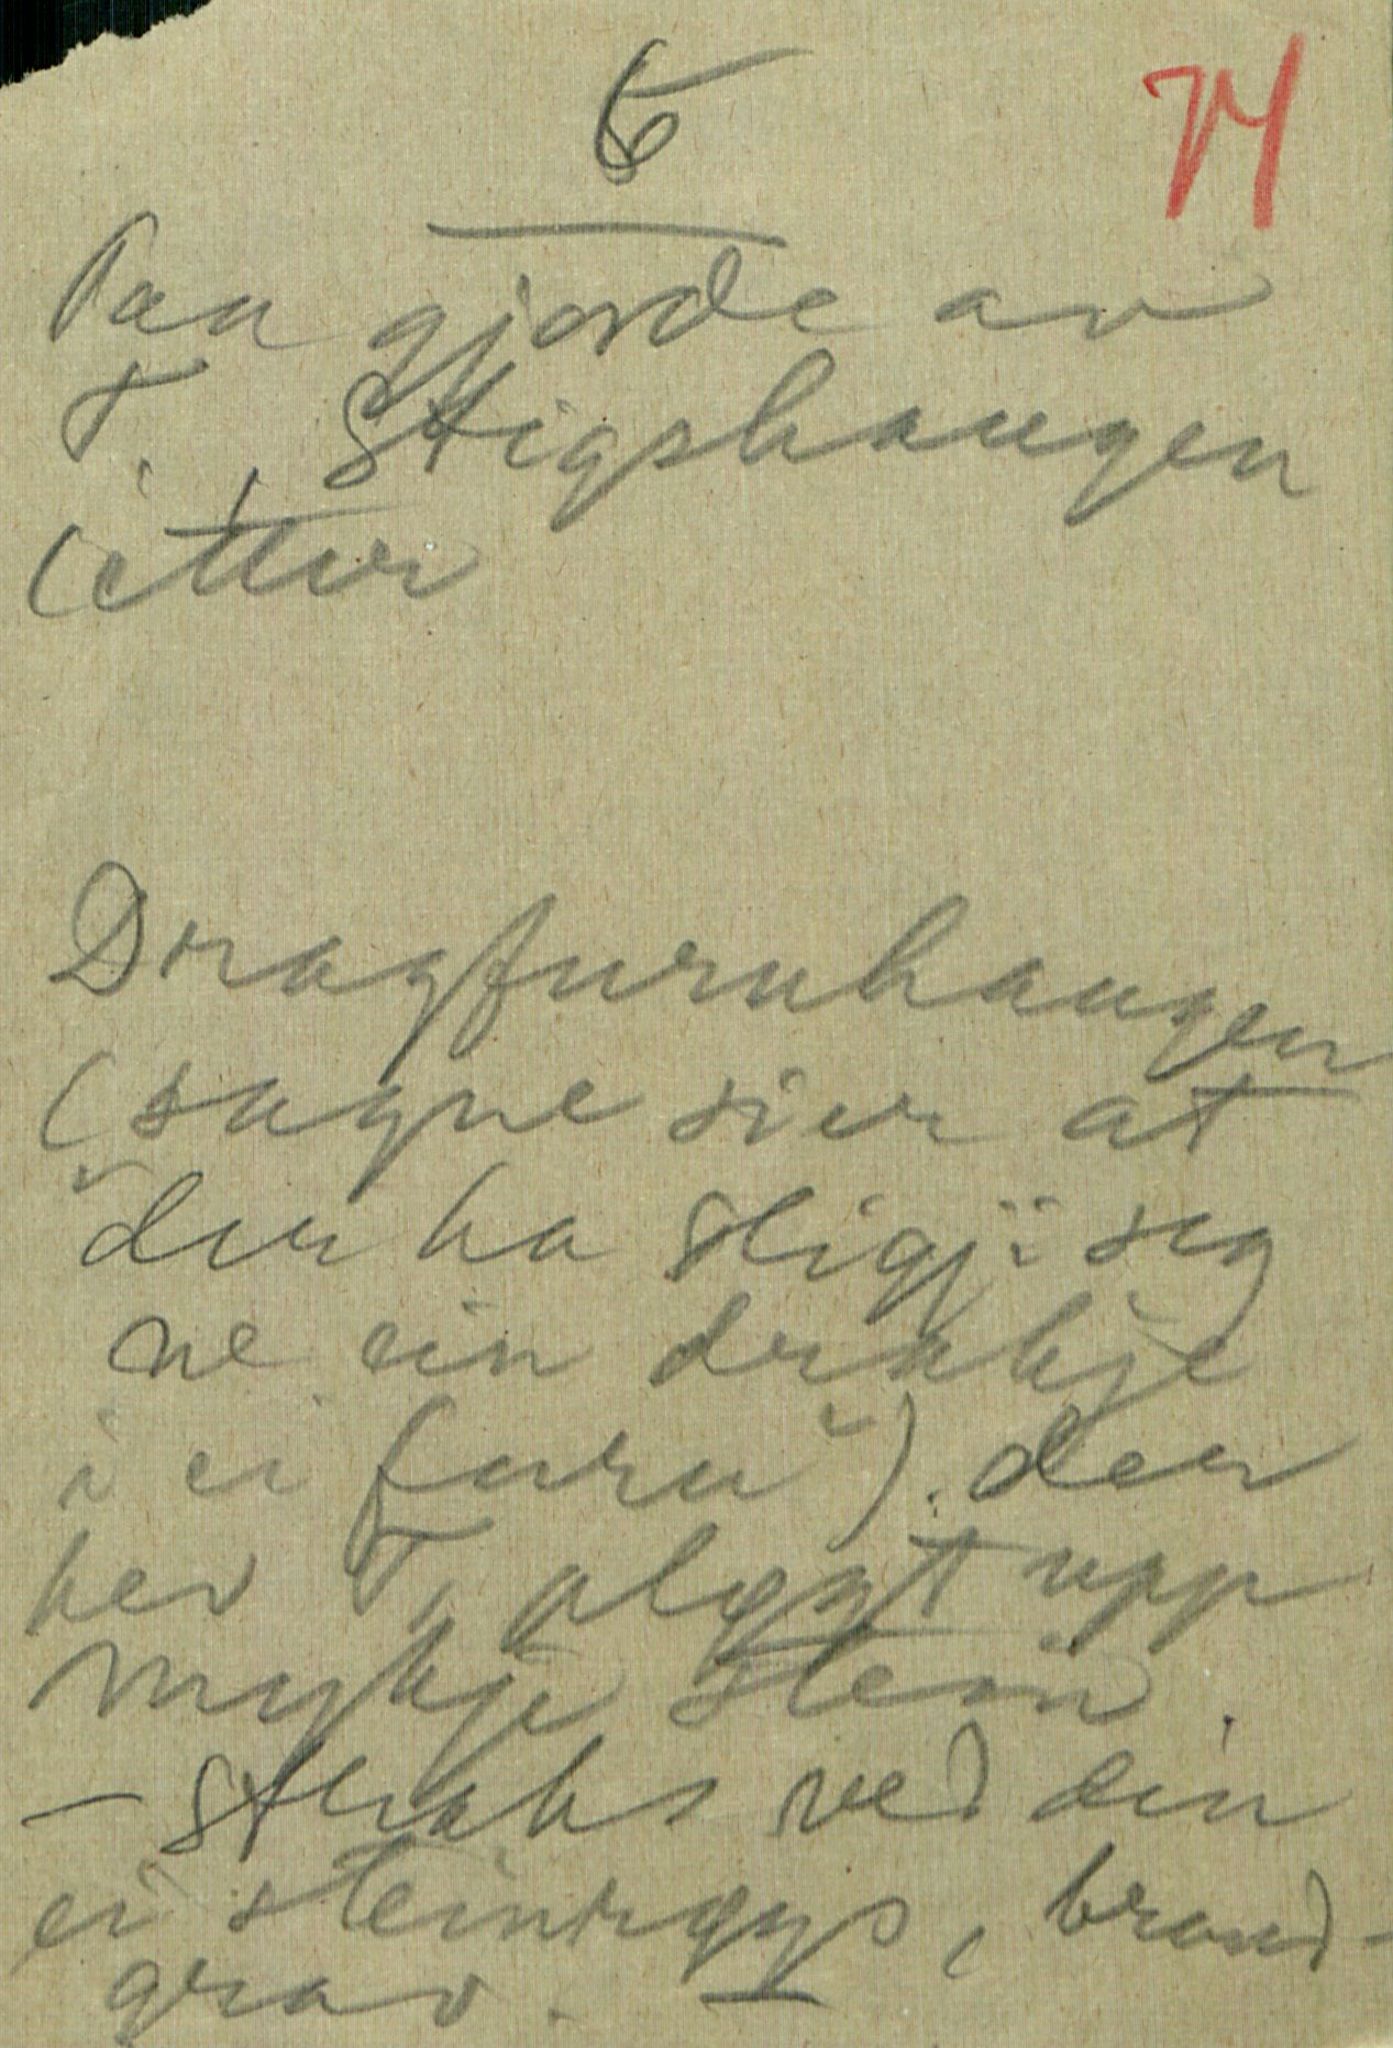 6
74
Paa gjorde av
T. Stigshaugen
(etter
Dragfuruhaugen
(sagne sier at
der ha sligji seg
ne ein drakje
i ei furu). den
hev T. alggt upp
mykje stein.
– straks ved ein
ei steinrøys, brand-
grav. –